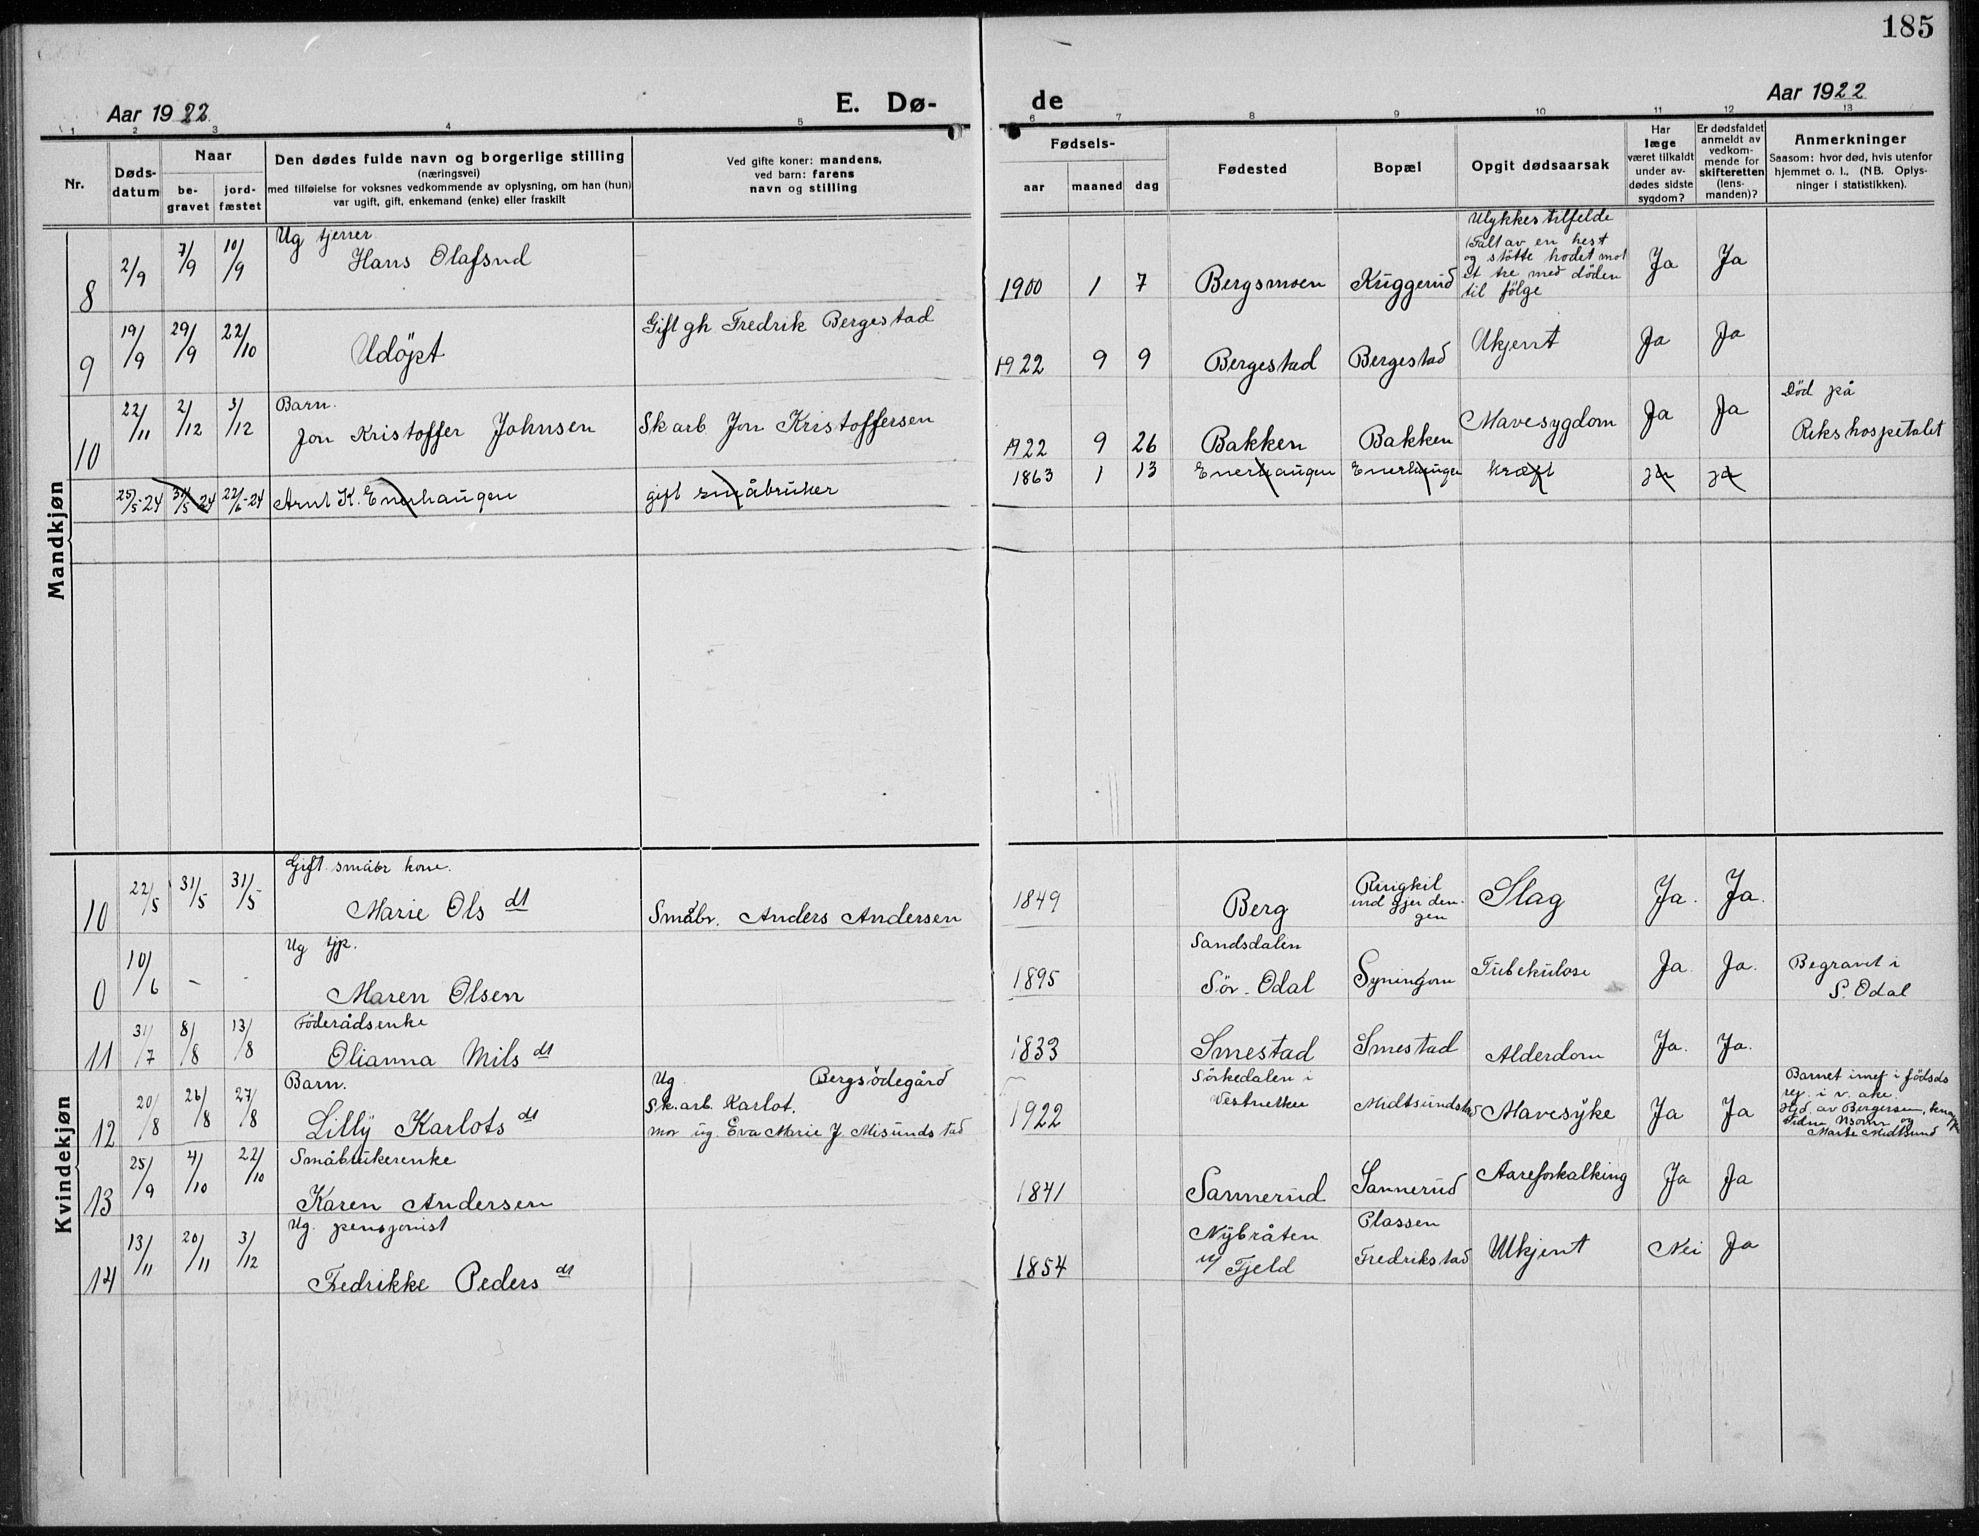 185
Aar 1922
E. Dø-
de
Aar 1922
1 2 3 4 5 6 7 8 9 10 11 12 13
Nr.
Døds-
datum
Naar
be-
gravet
jord-
fæstet
Den dødes fulde navn og borgerlige stilling
(næringsvei)
med tilføielse for voksnes vedkommende av oplysning, om han (hun)
var ugift, gift, enkemand (enke) eller fraskilt
Ved gifte koner: mandens,
ved barn: farens
navn og stilling
Fødsels-
aar maaned dag
Fødested
Bopæl
Opgit dødsaarsak
Har
læge
været tilkaldt
under av-
dødes sidste
sygdom?
Er dødsfaldet
anmeldt av
vedkom-
mende for
skifteretten
(lens-
manden)?
Anmerkninger
Saasom: hvor død, hvis utenfor
hjemmet o. l.. (NB. Oplys-
ninger i statistikken).
Mandkjøn
8 2/9 7/9 10/9
Ug tjener
Hans Olafsnd
1900 1 7 Bergsmoen Kriggerud
Ulykkestilfelde
(Falt av en hest
og støtte hodet mot
et tre med döden
til fölge
Ja Ja
9 19/9 29/9 22/10
Udöpt
Gift gh Fredrik Bergestad
1922 9 9 Bergestad Bergestad Ukjent Ja Ja
10 22/11 2/12 3/12
Barn.
Jon Kristoffer Johnsen
Skarb Jon Kristoffersen
1922 9 26 Bakken Bakken Mavesygdom Ja Ja
Död på
Rikshospetalet
25/5-24 31/5 24 22/6-24 Arnt K. Enerhaugen gift småbruker
1863 1 13 Enerhaugen Enerhaugen kræft ja ja
Kvindekjøn
10 22/5 31/5 31/5
Gift småbr kone.
Marie Ols dt
Småbr. Anders Andersen
1849 Berg
ind gjerden-
gen
Slag Ja. Ja.
0 10/6 - -
Ug tjp.
Maren Olsen
1895
Sandsdalen
Sör-Odal
Syningom Tubekulose Ja. Ja.
Begravet i
S. Odal
11 31/7 8/8 13/8
Föderådsenke
Olianna Nils dt
1833 Smestad Smestad Alderdom Ja. Ja.
12 20/8 26/8 27/8
Barn.
Lilly Karlots dt
Ug Bergsödegård
Sk.arb. Karlot.
mor ug. Eva Marie J. Misundstad
1922
Sörkedalen i
Midtsundstad Mavesyke Ja Ja
Barnet innf i födsds
rej. i v. ake.
Hjd. av Bergersen,
Marte Midtsund
13 25/9 4/10 22/10
Småbrukerenke
Karen Andersen
1841 Sannerud Sannerud Aareforkalking Ja Ja
14 13/11 20/11 3/12
Ug. pensjonist
Fredrikke Peders dt
1854
Nybråten
u/ Fjeld
Plassen
Fredrikstad
Ukjent Nei Ja